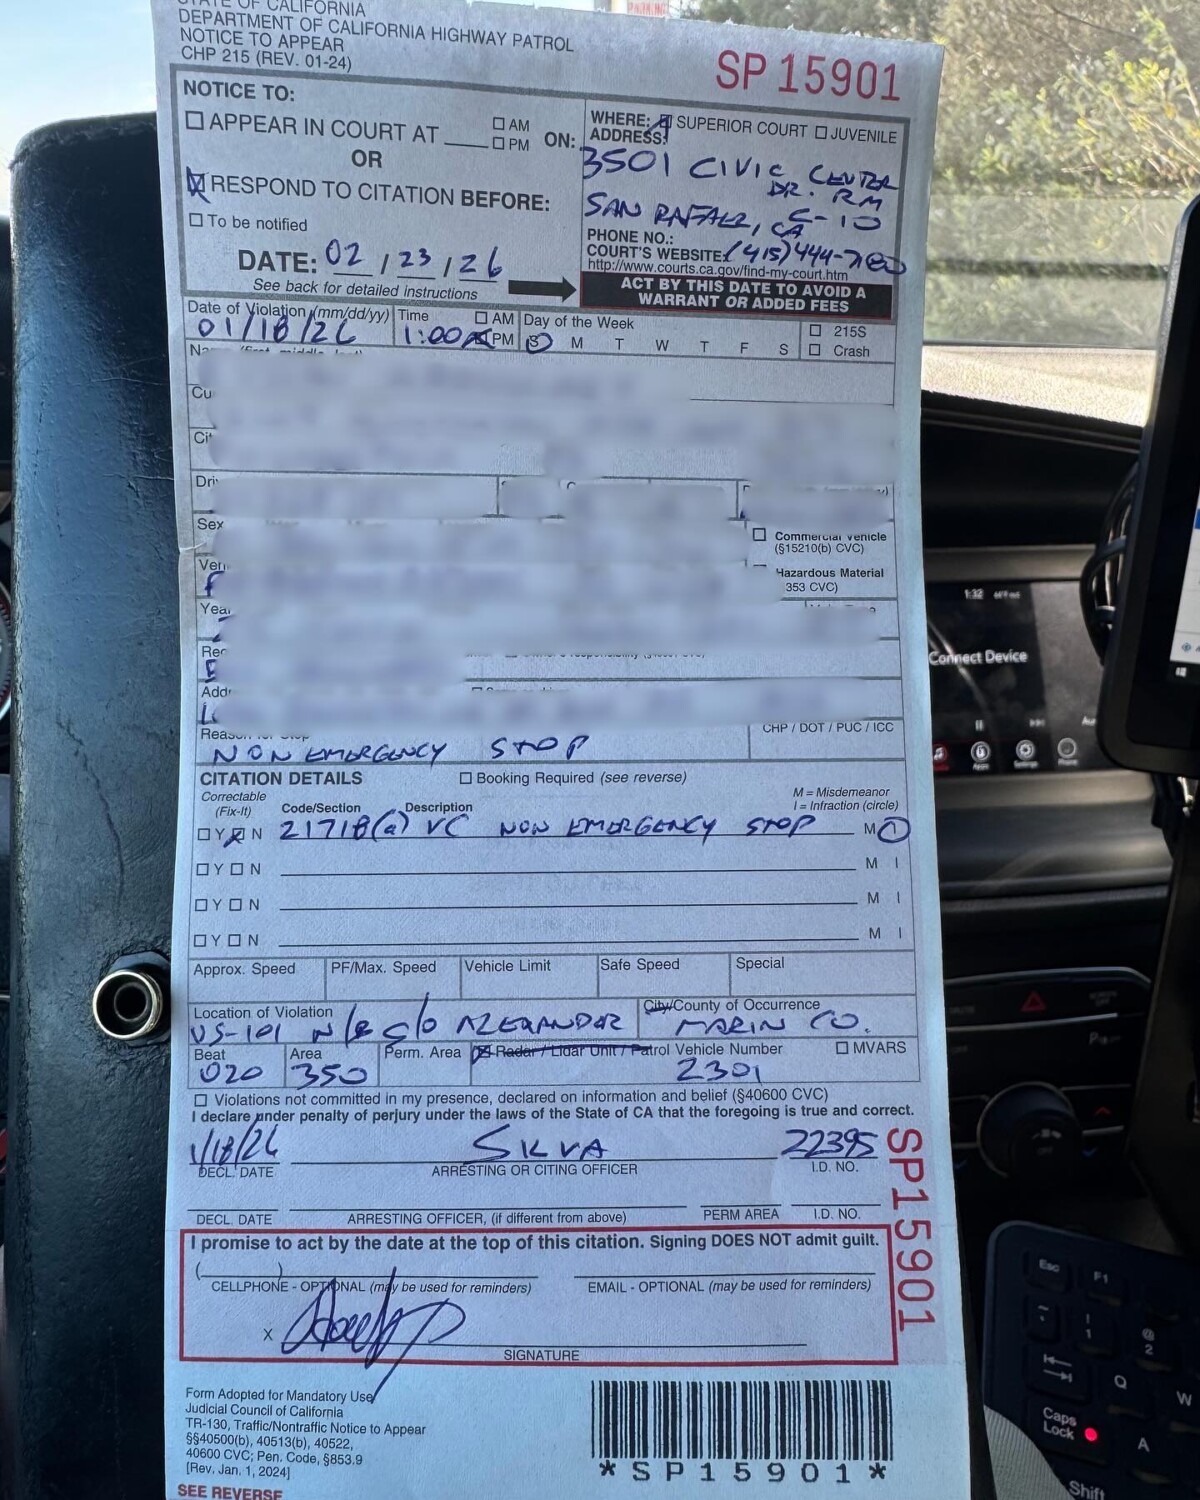 STATE OF CALIFORNIA
DEPARTMENT OF CALIFORNIA HIGHWAY PATROL
NOTICE TO APPEAR
CHP 215 (REV. 01-24)
SP 15901
NOTICE TO:
APPEAR IN COURT AT ____ AM PM ON:
OR
RESPOND TO CITATION BEFORE:
To be notified
DATE: 02 / 23 / 26
See back for detailed instructions
WHERE: SUPERIOR COURT JUVENILE
ADDRESS:
3501 CIVIC CENTER
DR. RM
SAN RAFAEL, CA C-10
PHONE NO.:
COURT'S WEBSITE: (415) 444-
http://www.courts.ca.gov/find-my-court.htm
ACT BY THIS DATE TO AVOID A
WARRANT OR ADDED FEES
Date of Violation (mm/dd/yy) Time AM Day of the Week 215S
01/18/26 1:00 PM S M T W T F S Crash
Cu
Sex
Commercial Vehicle
(§15210(b) CVC)
Hazardous Material
353 CVC)
Year
Addr
Reason for Stop CHP / DOT / PUC / ICC
NON EMERGENCY STOP
CITATION DETAILS Booking Required (see reverse)
Correctable M = Misdemeanor
(Fix-It) Code/Section Description I = Infraction (circle)
Y N 21718(a) VC NON EMERGENCY STOP M I
Y N M I
Y N M I
Y N M I
Approx. Speed PF/Max. Speed Vehicle Limit Safe Speed Special
Location of Violation City/County of Occurrence
US-101 N/B S/O ALEXANDER MARIN CO.
Beat Area Perm. Area Radar / Lidar Unit / Patrol Vehicle Number MVARS
020 350 2301
Violations not committed in my presence, declared on information and belief (§40600 CVC)
I declare under penalty of perjury under the laws of the State of CA that the foregoing is true and correct.
1/18/26 SILVA 22395
DECL. DATE ARRESTING OR CITING OFFICER I.D. NO.
DECL. DATE ARRESTING OFFICER, (if different from above) PERM AREA I.D. NO.
SP15901
I promise to act by the date at the top of this citation. Signing DOES NOT admit guilt.
CELLPHONE - OPTIONAL (may be used for reminders) EMAIL - OPTIONAL (may be used for reminders)
X
SIGNATURE
Form Adopted for Mandatory Use
Judicial Council of California
TR-130, Traffic/Nontraffic Notice to Appear
§§40500(b), 40513(b), 40522,
40600 CVC; Pen. Code, §853.9
[Rev. Jan. 1, 2024]
SEE REVERSE
*SP15901*
1:32
Connect Device
Esc F1
! 1
@ 2
Q W
Caps Lock A
Shift